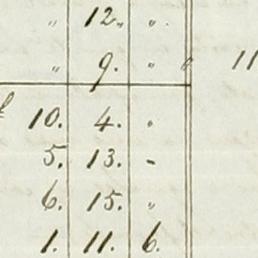 „ 12. „ .
„ 9. „ „ 11
10. 4. „
5. 13. -
6. 15. „
1. 11. 6.